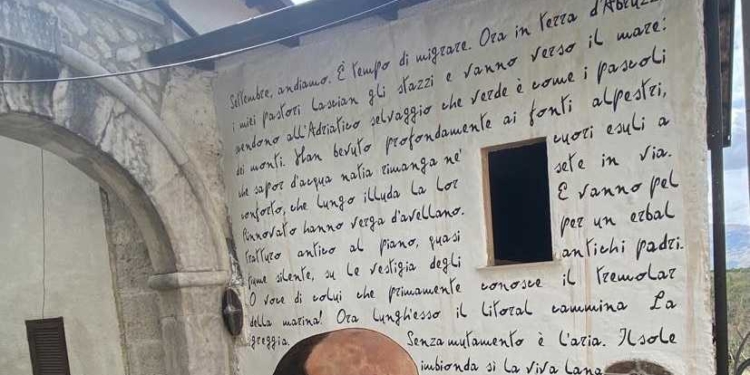 Settembre, andiamo. È tempo di migrare. Ora in terra d'Abruzzi
i miei pastori lascian gli stazzi e vanno verso il mare:
scendono all'Adriatico selvaggio che verde è come i pascoli
dei monti. Han bevuto profondamente ai fonti alpestri,
che sapor d'acqua natia rimanga ne' cuori esuli a
conforto, che lungo illuda la lor sete in via.
Rinnovato hanno verga d'avellano. E vanno pel
tratturo antico al piano, quasi per un erbal
fiume silente, su le vestigia degli antichi padri.
O voce di colui che primamente conosce il tremolar
della marina! Ora lunghesso il litoral cammina La
greggia. Senza mutamento è l'aria. Il sole
imbionda sì la viva lana